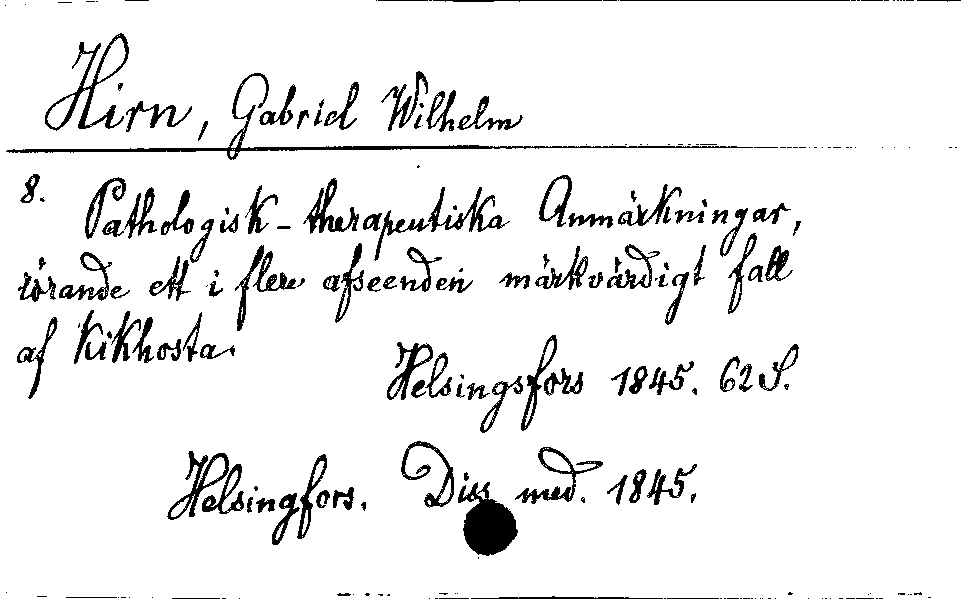 Hirn, Gabriel Wilhelm
8. Pathologisk-therapeutiska Anmärkningar,
rörande ett i flere afseenden märkvärdigt fall
af Kikhosta.
Helsingsfors 1845. 62 S.
Helsingfors. Diss med. 1845.